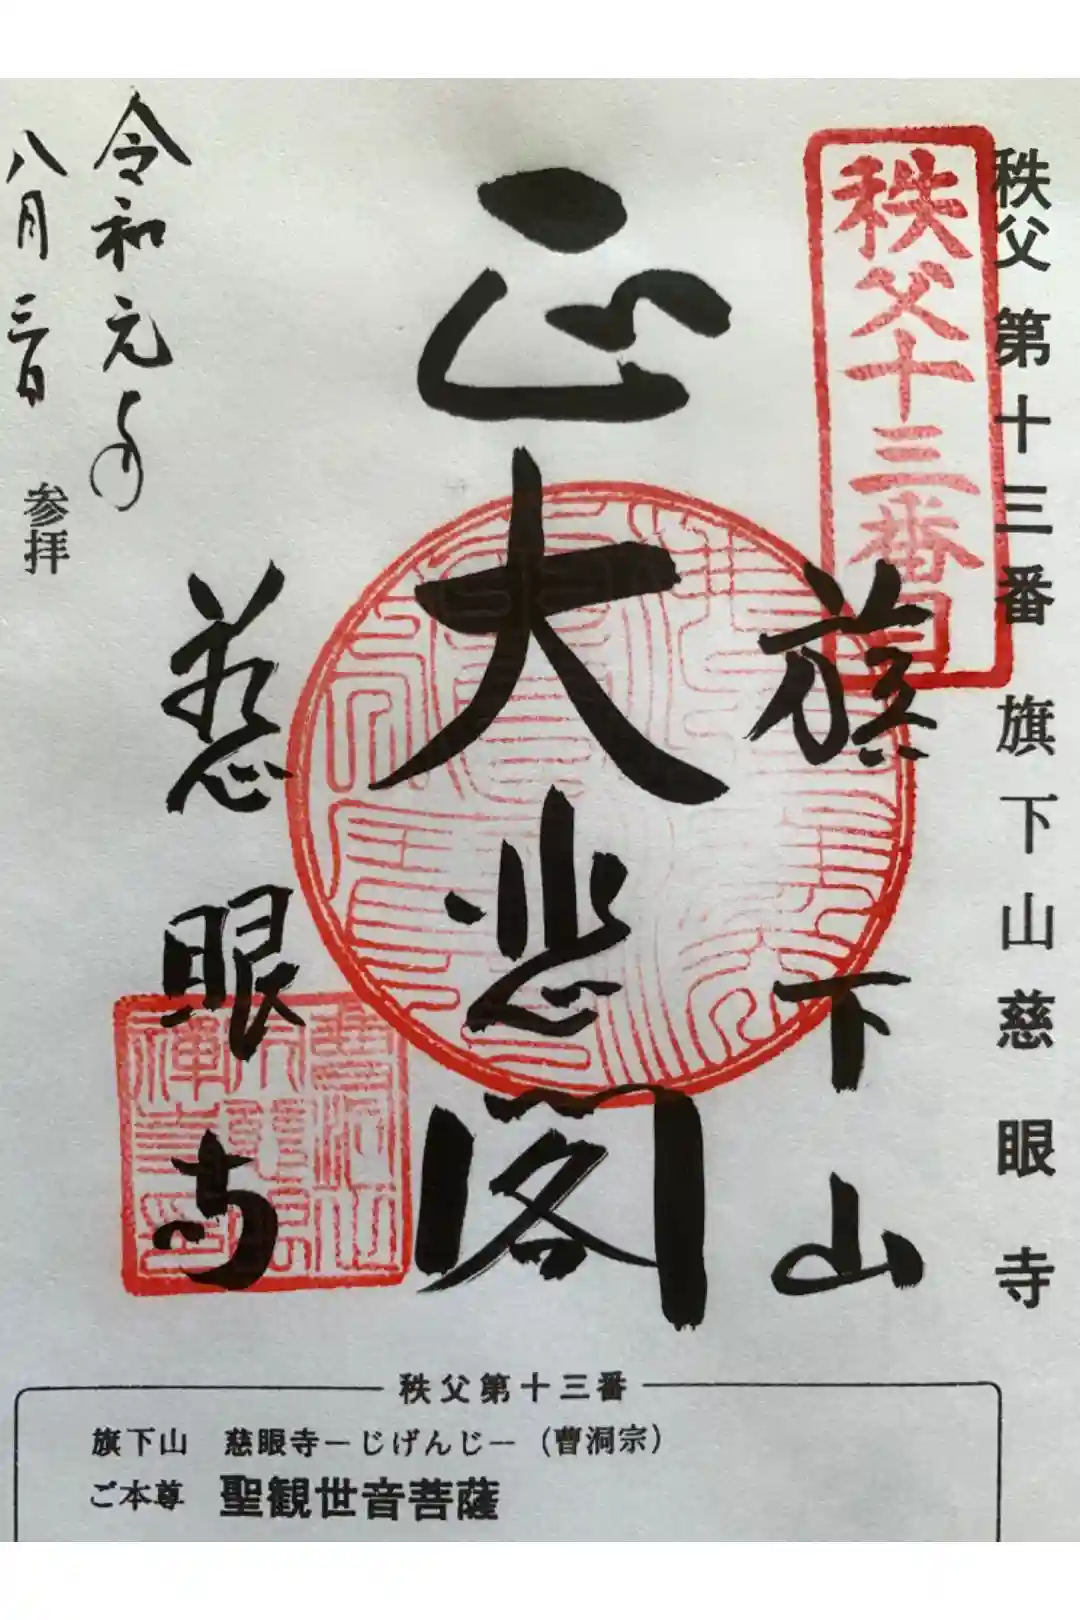 秩父第十三番 旗下山慈眼寺
秩父十三番
旗下山
正大悲閣
慈眼寺
令和元年
八月三日 参拝
秩父第十三番
旗下山 慈眼寺ーじげんじー（曹洞宗）
ご本尊 聖観世音菩薩